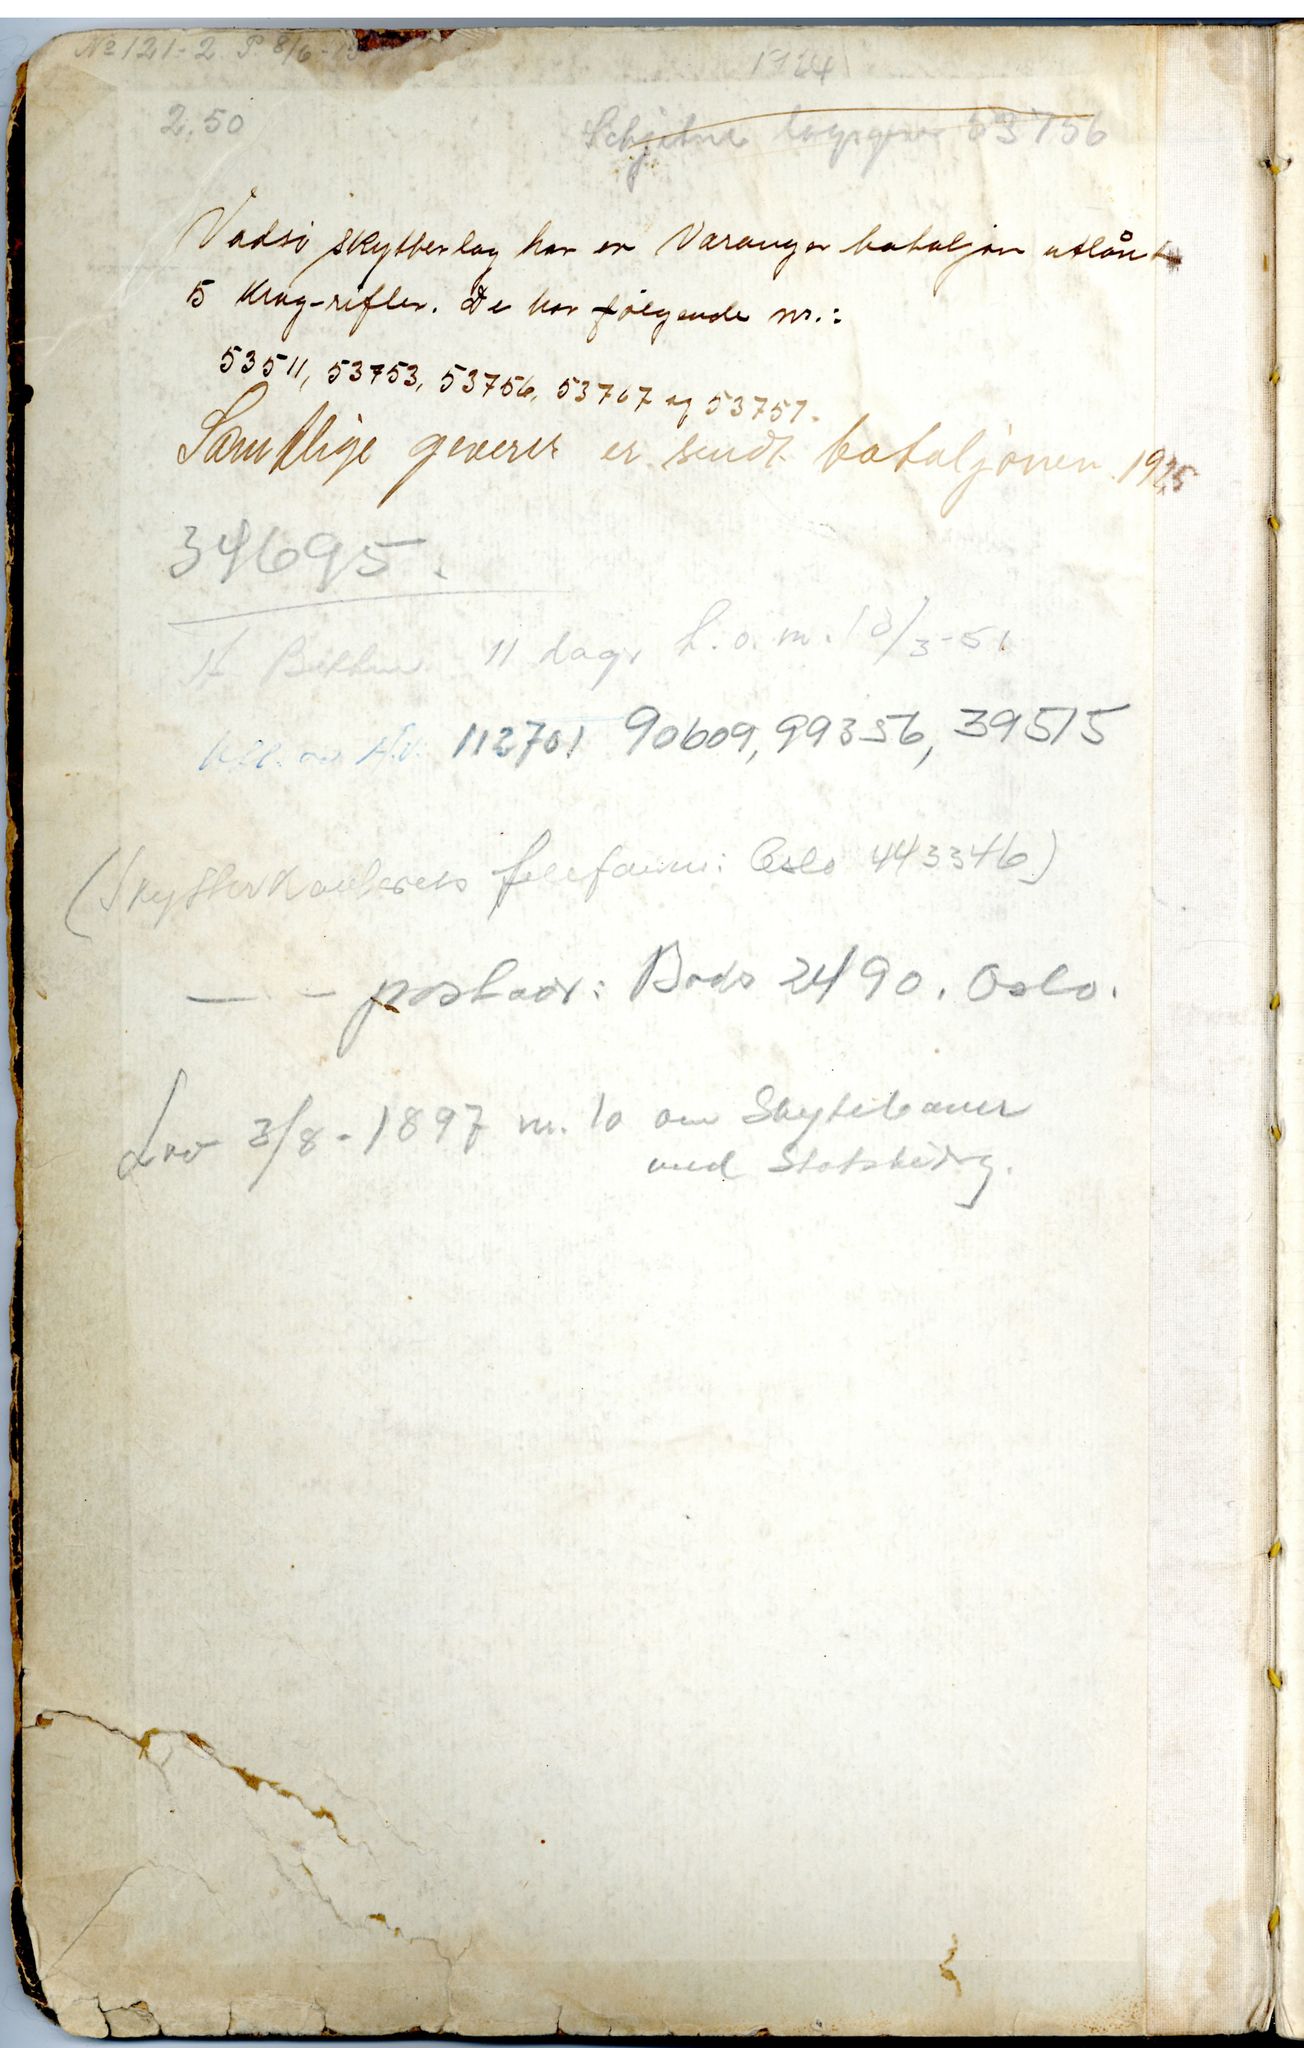 No 121-2 P. 8/6-15
1924
2.50
53756
Vadsø skytterlag har av Varanger bataljon utlånt
5 Krag-rifler. De har følgende nr.:
53511, 53753, 53756, 53707 og 53757.
Samtlige geværer er sendt bataljonen 1925
34695.
11 dage f.o.m. 18/3-51
112701 90609, 99356, 39515
(Skytterkontorets telefonnr: Oslo 443346)
— - postadr: Boks 2490. Oslo.
Lov 3/8-1897 nr. 10 om Skytebaner
med Statsbidrag.